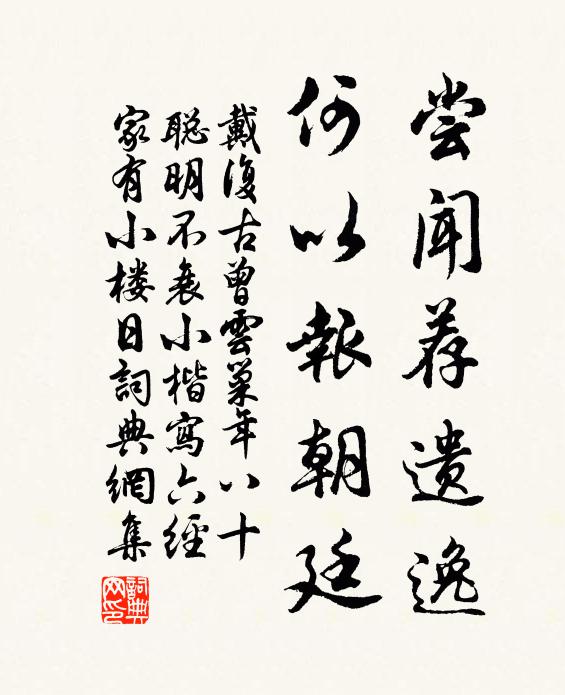 尝闻荐遗逸
何以報朝廷
戴復古曾雲巢年八十
聪明不衰小楷寫六經
家有小楼日詞典網集
詞典网印